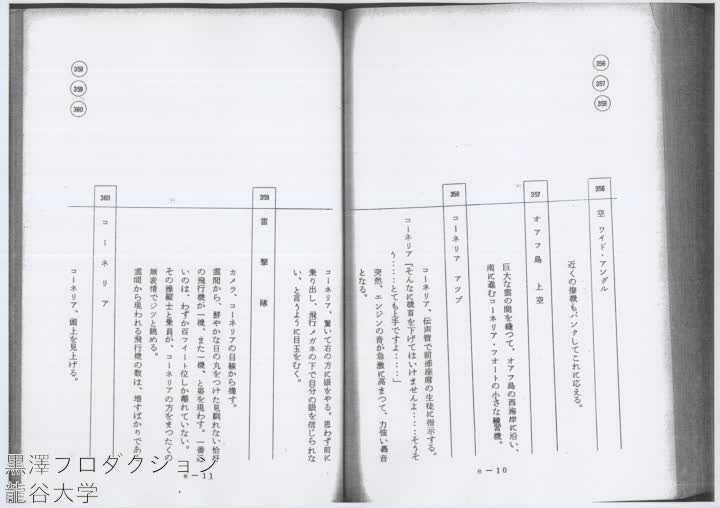 356
357
358
356 空 ワイド・アングル
近くの僚機もバンクしてこれに応える。
357 オアフ島 上空
巨大な雲の間を縫つて、オアフ島の西海岸に沿い、
南に進むコーネリア・フォートの小さな練習機。
358 コーネリア アツプ
コーネリア、伝声管で前部座席の生徒に指示する。
コーネリア「そんなに機首を下げてはいけませんよ‥‥そうそ
う‥‥‥とても上手ですよ‥‥‥」
突然、エンジンの音が急激に高まつて、力強い轟音
となる。
e－10
358
359
360
コーネリア、驚いて右の方に眼をやる。思わず前に
乗り出し、飛行メガネの下で自分の眼を信じられな
い、と言うように目玉をむく。
359 雷撃隊
カメラ、コーネリアの目線から撮す。
雲間から、鮮やかな日の丸をつけた見馴れない恰好
の飛行機が一機、また一機、と姿を現わす。一番近
いのは、わずか百フイート位しか離れていない。
その操縦士と乗員が、コーネリアの方をまつたくの
無表情でジツと眺める。
雲間から現われる飛行機の数は、増すばかりであ
360 コーネリア
コーネリア、頭上を見上げる。
e－11
黒澤プロダクション
龍谷大学